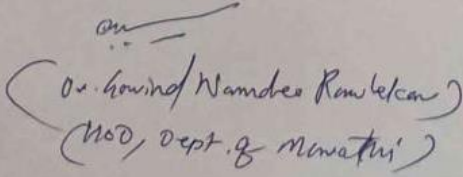 (Dr. Govind Namdeo Ramlekar)
(HOD, Dept. of Marathi)